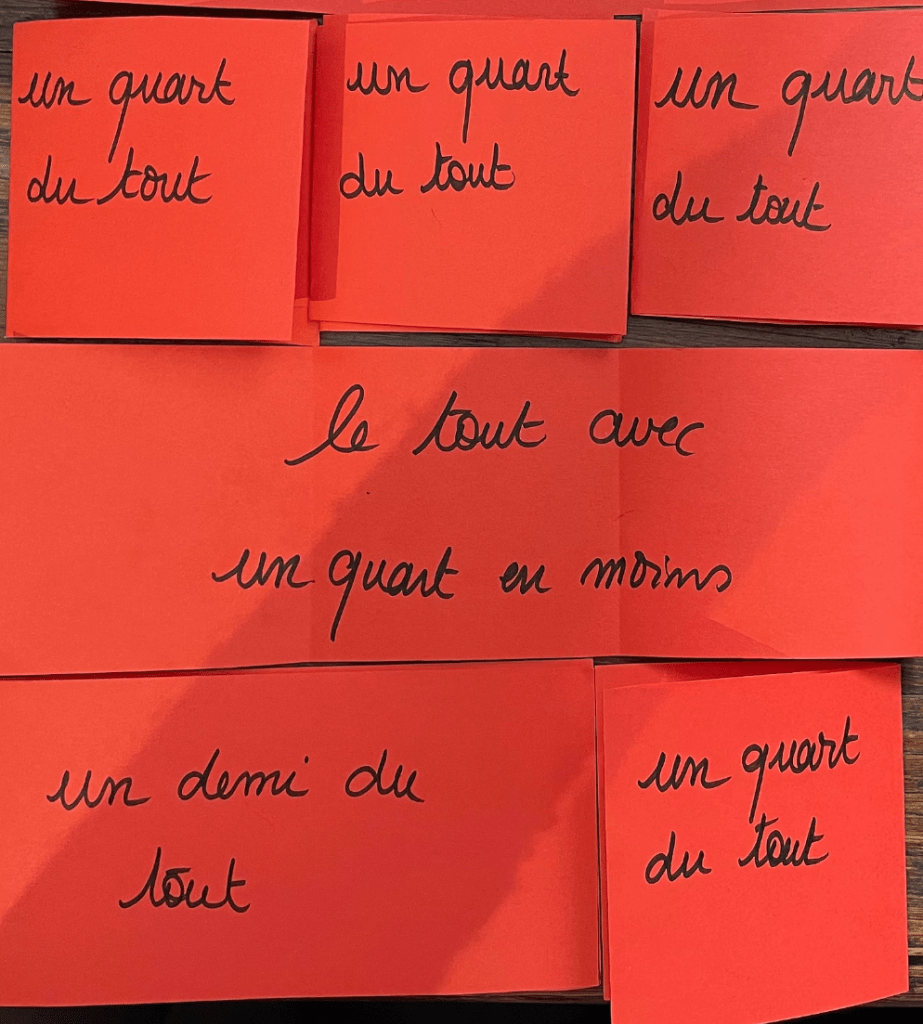 un quart
du tout
un quart
du tout
un quart
du tout
le tout avec
un quart en moins
un demi du
tout
un quart
du tout